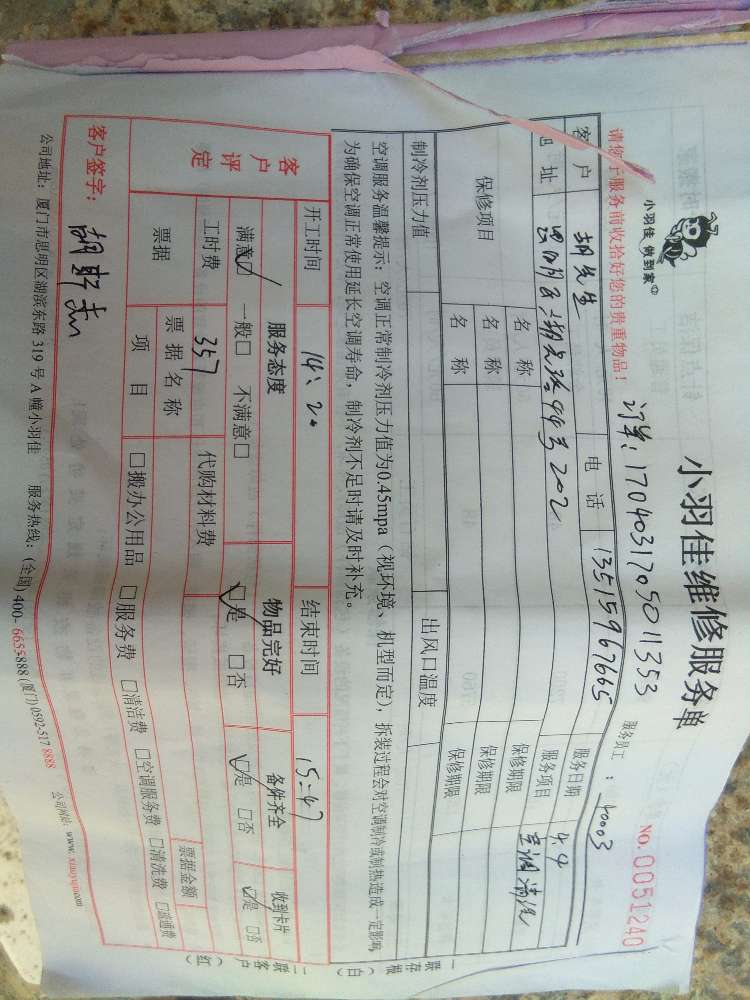 小羽佳维修服务单
小羽佳 做到家
订单:1704031705011353
服务员工:40003
NO. 0051240
请您于服务前收拾好您的贵重物品!
客户 胡先生 电话 13515967665 服务日期 4.4
址 思明区 44号202 服务项目 空调清洗
保修项目 名称 保修期限
名称 保修期限
名称 保修期限
制冷剂压力值 出风口温度
空调服务温馨提示:空调正常制冷剂压力值为0.45mpa(视环境、机型而定),拆装过程会对空调制冷或制热造成一定影响
为确保空调正常使用延长空调寿命,制冷剂不足时请及时补充。
开工时间 14:20 结束时间 15:47
客户评定 服务态度 物品完好 备件齐全 收到卡片
满意☑ 一般□ 不满意□ ☑是 □否 ☑是 □否 ☑是 □否
工时费 357 代购材料费
票据 票据名称 票据金额
项目 □搬办公用品 □服务费 □清洁费 □空调服务费 □清洗费 □疏通费
客户签字:
公司地址:厦门市思明区湖滨东路319号A幢小羽佳 服务热线:(全国)400-6655888(厦门)0592-5178888 公司网站:www.xiaoyujia.com
一联存根(白) 二联客户(红)